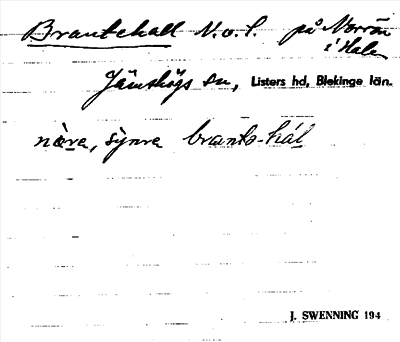 Brantehall N. o. S. på Norrön
i Halen
Jämshögs sn, Listers hd, Blekinge län.
nø̀rra, sỳnra brantə-hál
J. SWENNING 194